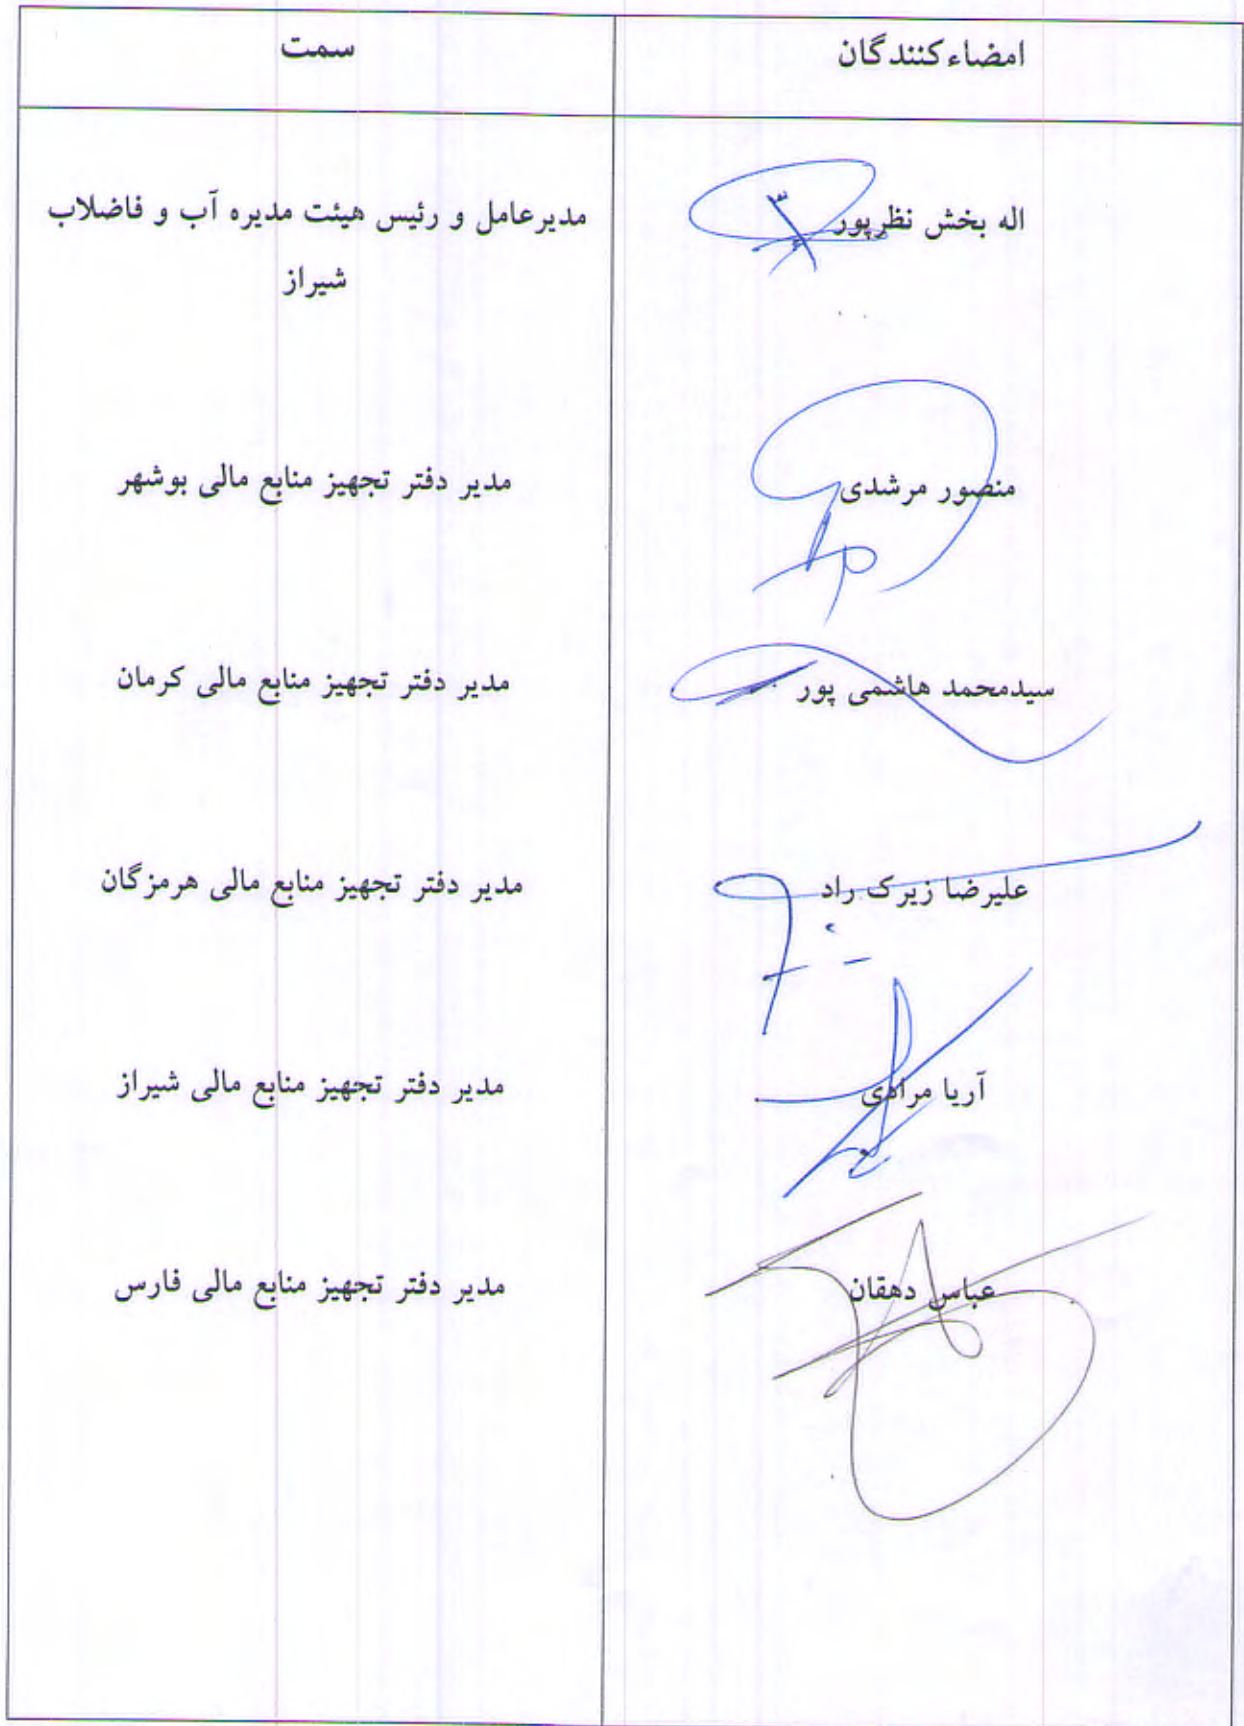 امضاءکنندگان
سمت
اله بخش نظرپور
مدیرعامل و رئیس هیئت مدیره آب و فاضلاب
شیراز
منصور مرشدی
مدیر دفتر تجهیز منابع مالی بوشهر
سیدمحمد هاشمی پور
مدیر دفتر تجهیز منابع مالی کرمان
علیرضا زیرک راد
مدیر دفتر تجهیز منابع مالی هرمزگان
آریا مرادی
مدیر دفتر تجهیز منابع مالی شیراز
عباس دهقان
مدیر دفتر تجهیز منابع مالی فارس